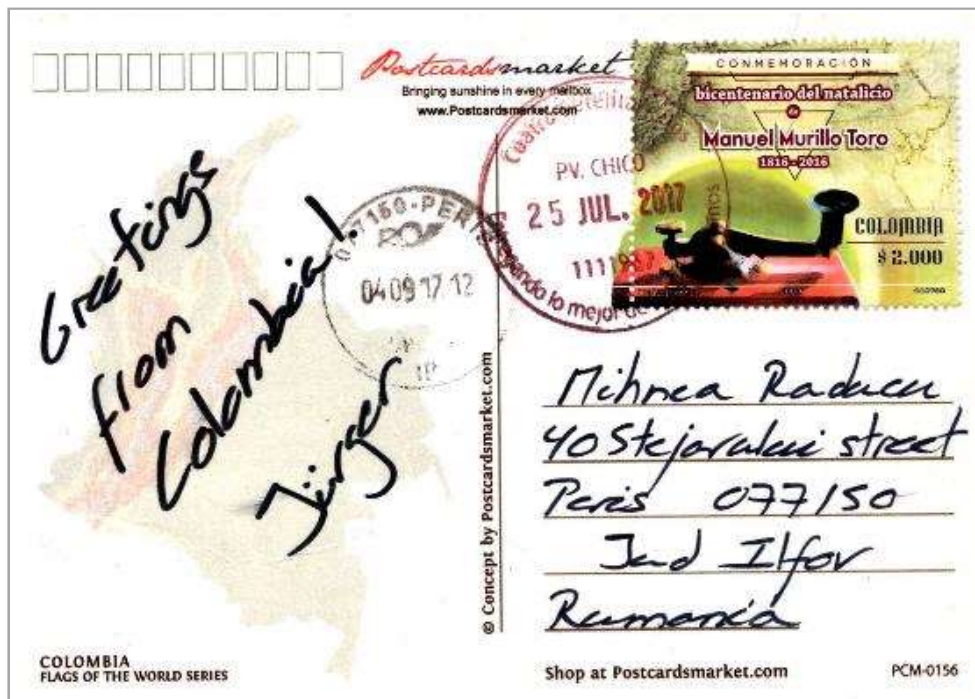 Postcardsmarket
Bringing sunshine in every mailbox
www.Postcardsmarket.com
CONMEMORACIÓN
bicentenario del natalicio
de
Manuel Murillo Toro
1816 - 2016
COLOMBIA
$ 2.000
PV. CHICO
25 JUL. 2017
lo mejor de
077150-PERIS
04 09 17.12
Greetings
from
Colombia!
Jürger
© Concept by Postcardsmarket.com
Mihnea Raducu
40 Stejarului street
Peris 077150
Jud Ilfov
Rumania
COLOMBIA
FLAGS OF THE WORLD SERIES
Shop at Postcardsmarket.com
PCM-0156